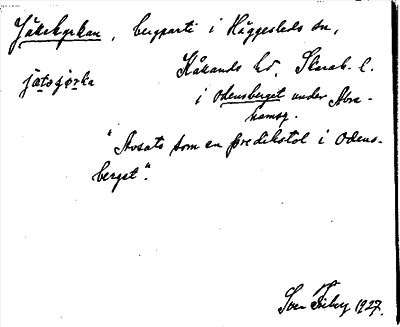 Jättekyrkan, bergparti i Häggesleds sn,
Kållands hd, Skarab. l.
i Odensberget under Abra-
hamsg.
"Avsats som en predikstol i Odens-
berget".
Sven Friberg 1927.